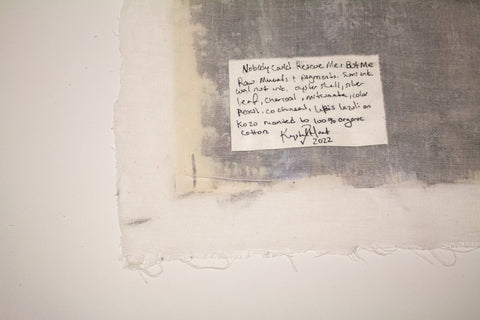 Nobody Could Rescue Me But Me
Raw Minerals + pigments, Sumi ink
walnut ink, oyster shell, silver
leaf, charcoal, mitsumata, color
pencil, cochineal, Lapis Lazuli on
Kozo mounted to 100% organic
cotton
2022